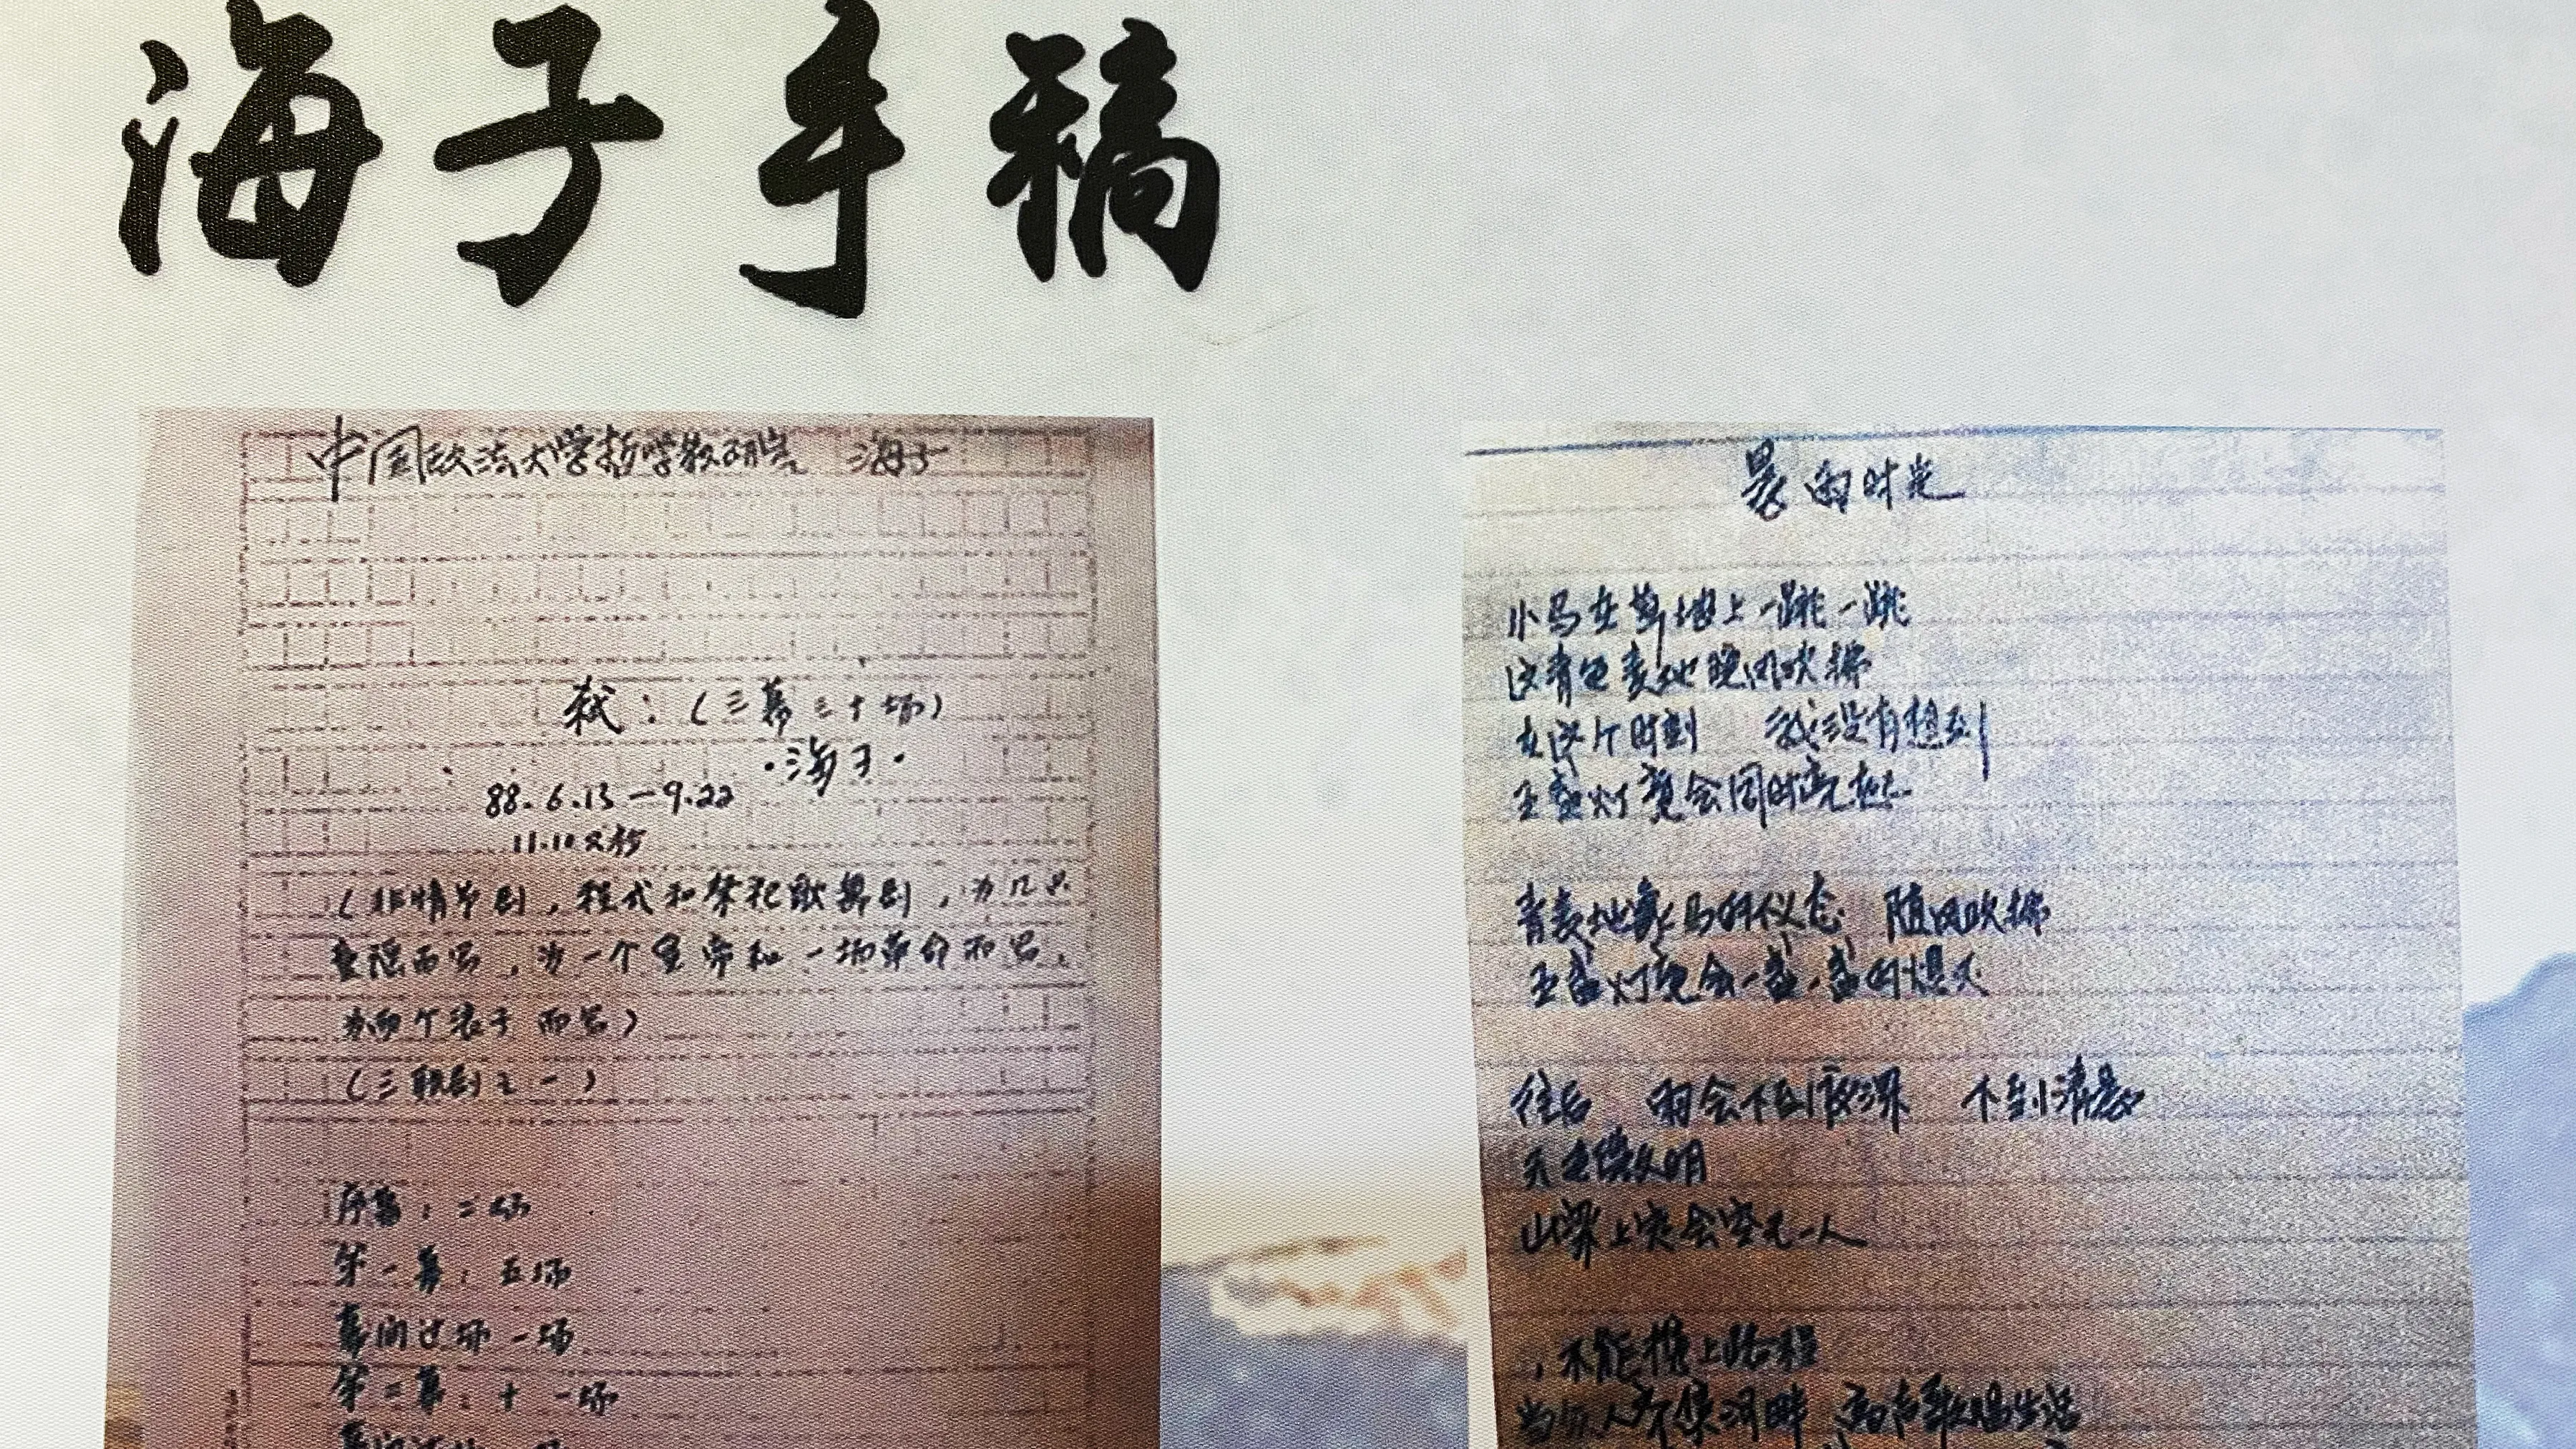 海子手稿
中国政法大学哲学教研室 海子
弑：（三幕三十场）
·海子·
88.6.13－9.22
11.10又抄
（非情节剧，程式和祭祀歌舞剧，为几只
童谣而写，为一个皇帝和一场革命而写，
为两个浪子而写）
（三联剧之一）
序幕：二场
第一幕：五场
幕间过场一场
第二幕：十一场
的时光
小马在草地上一跳一跳
这青色麦地晚风吹拂
在这个时刻 我没有想到
五盏灯竟会同时亮起
青麦地像马的仪态 随风吹拂
五盏灯竟会一盏一盏的熄灭
往后 雨会下到深夜 下到清晨
天色微明
山梁上定会空无一人
不能携上路程
当众人齐集河畔 高声歌唱生活